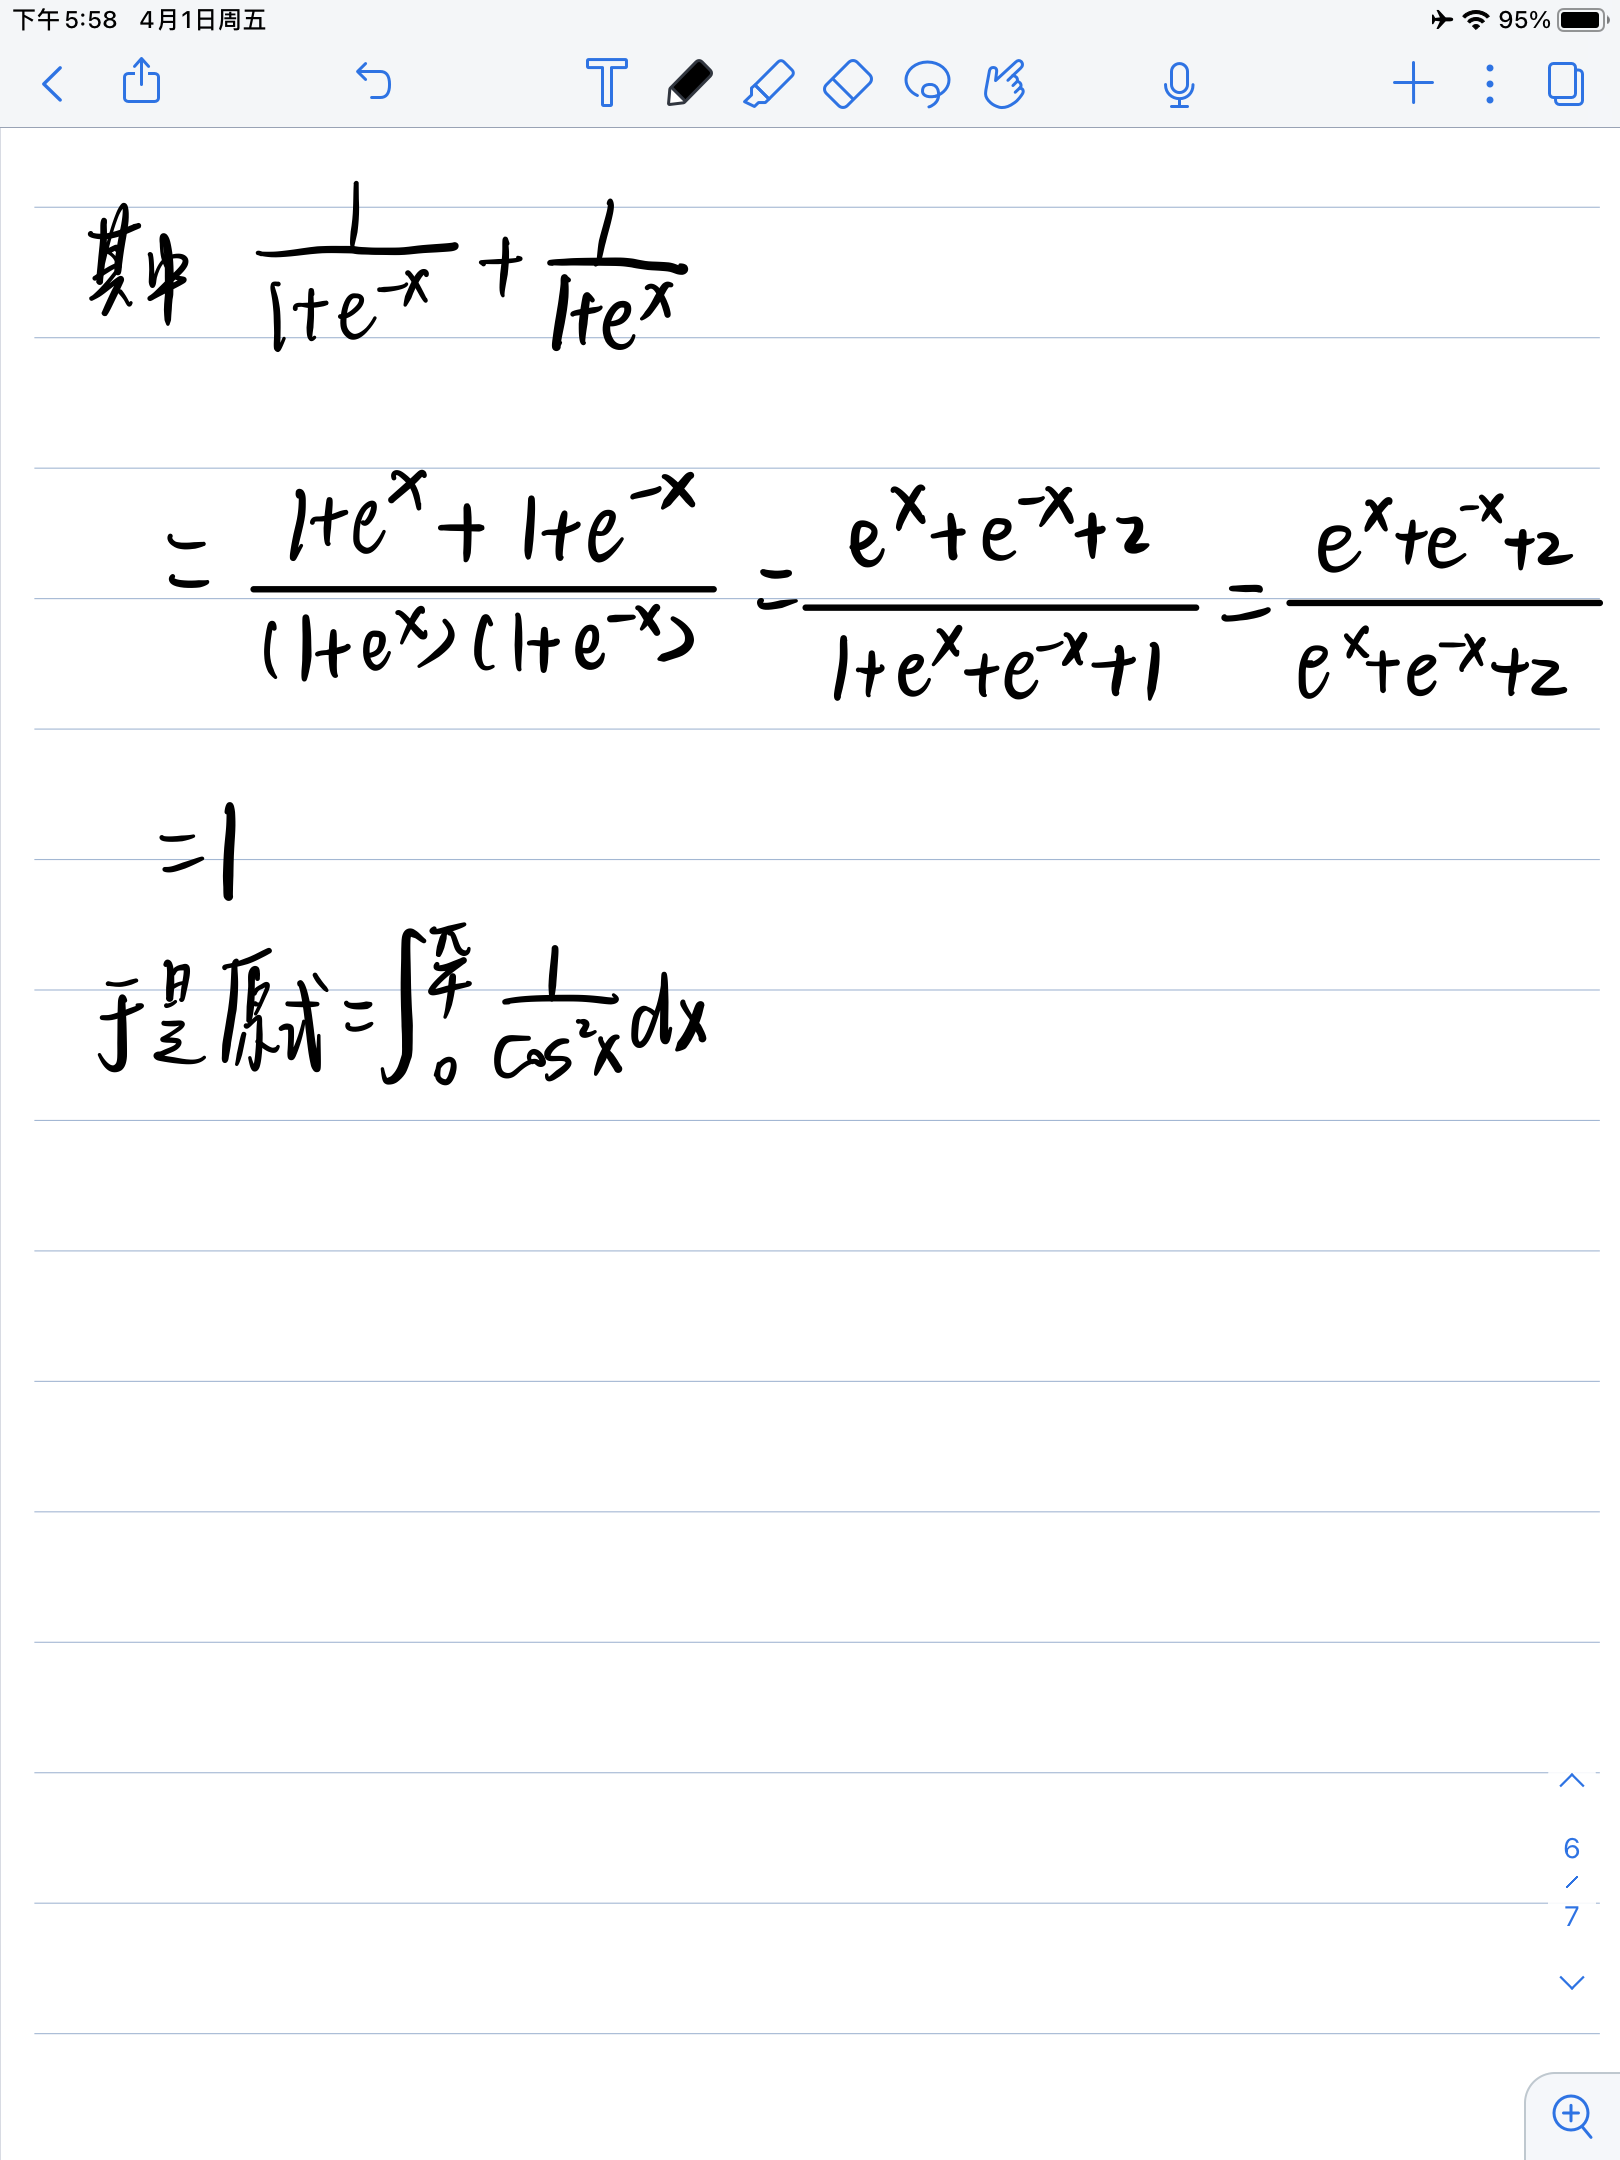 下午5:58 4月1日周五 95%
T
其中 \frac{1}{1+e^{-x}} + \frac{1}{1+e^{x}}
= \frac{1+e^{x}+1+e^{-x}}{(1+e^{x})(1+e^{-x})} = \frac{e^{x}+e^{-x}+2}{1+e^{x}+e^{-x}+1} = \frac{e^{x}+e^{-x}+2}{e^{x}+e^{-x}+2}
=1
于是 原式=\int_{0}^{\frac{π}{4}} \frac{1}{cos^{2}x} dx
6
/
7